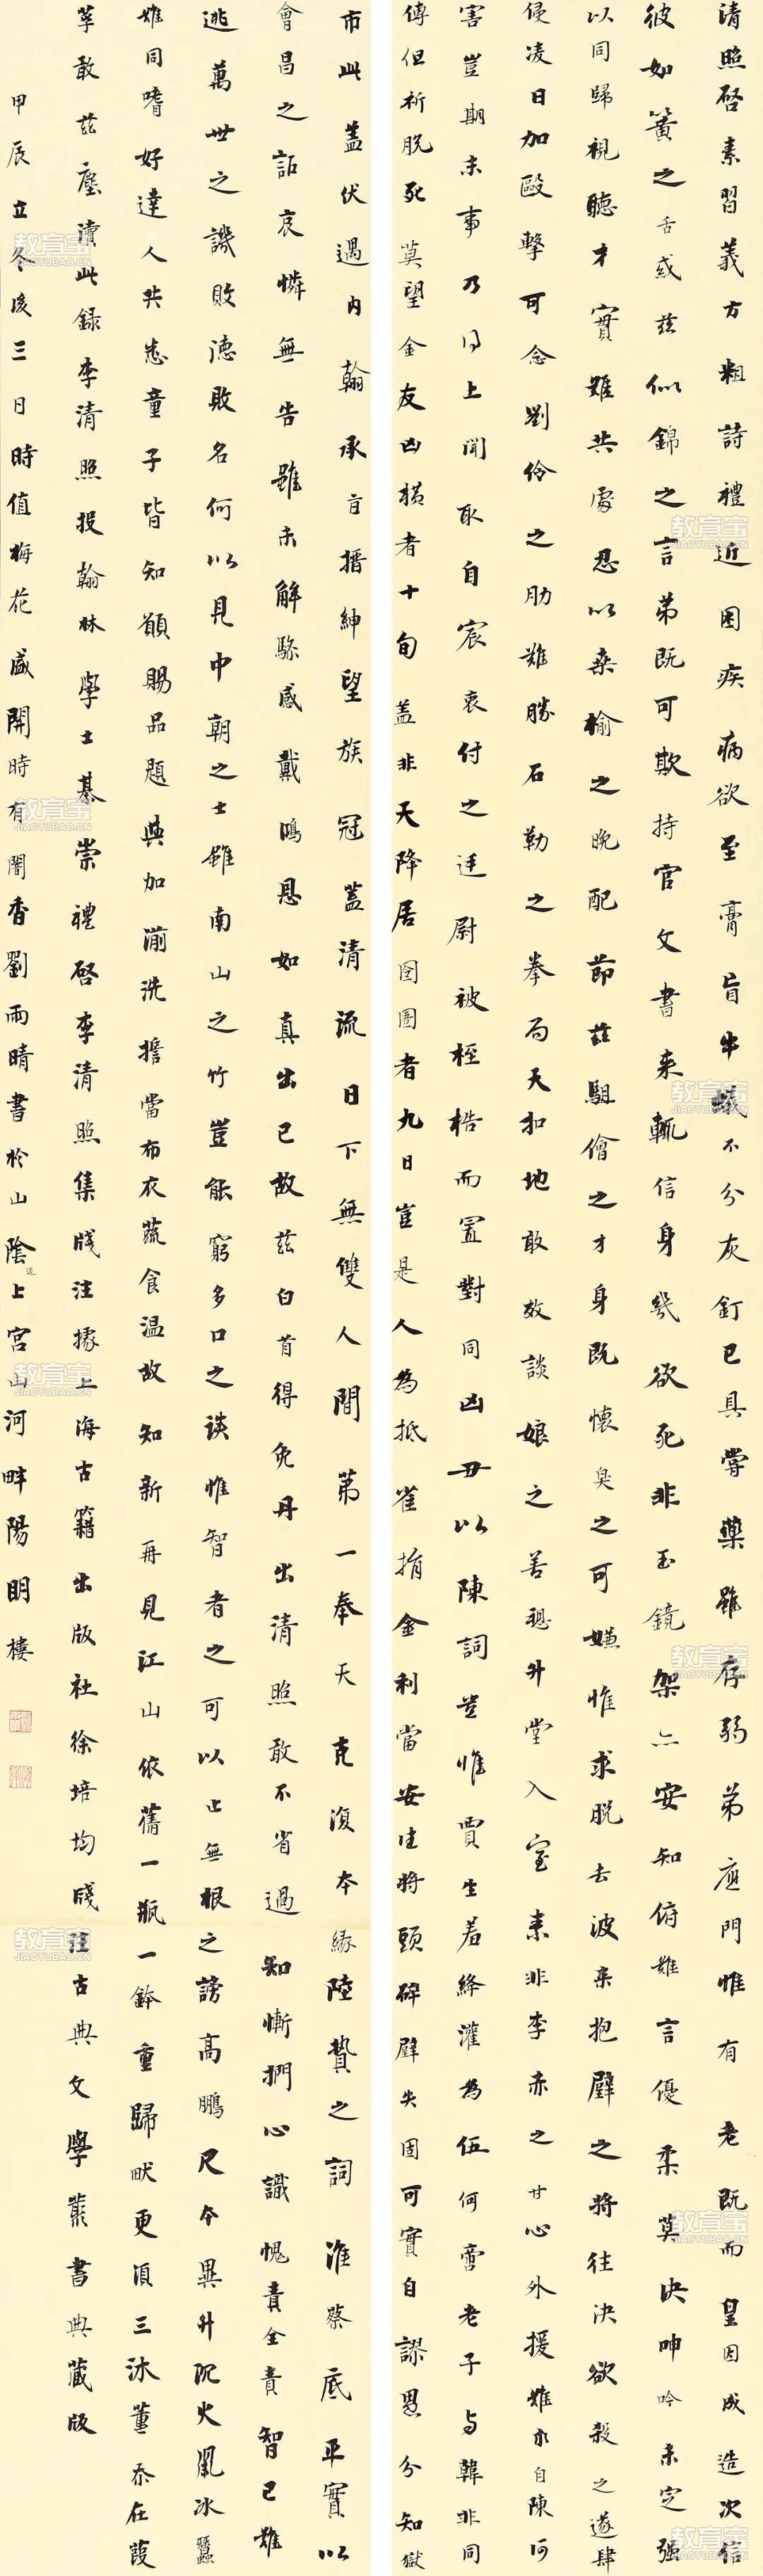 清照啓素習義方粗詩禮近困疾病欲至膏肓牛蟻不分灰釘已具嘗藥雖存弱弟應門惟有老既而皇因成造次信
彼如簧之舌或茲似錦之言弟既可欺持官文書来輒信身幾欲死非玉鏡架亦安知俯難言優柔莫決呻吟未定强
以同歸視聽才實難共處忍以桑榆之晚配節茲駔儈之才身既懷臭之可嫌惟求脫去彼素抱璧之將往決欲殺之遂肆
侵凌日加毆擊可念劉伶之肋難勝石勒之拳局天扣地敢效談娘之善愬升堂入室素非李赤之甘心外援難求自陳何
害豈期末事乃得上聞取自宸衷付之廷尉被桎梏而置對同凶丑以陳詞豈惟賈生羞絳灌為伍何啻老子与韓非同
傳但祈脫死莫望金友凶橫者十旬蓋非天降居囹圄者九日豈是人為抵雀捐金利當安往將頭碎璧失固可實自謬愚分知獄
市此蓋伏遇內翰承旨搢紳望族冠蓋清流日下無雙人間第一奉天克復本緣陸贄之詞淮蔡底平實以
會昌之詔哀憐無告雖未解驂感戴鴻恩如真出己故茲白首得免丹出清照敢不省過知慚捫心識愧責全責智已難
逃萬世之譏敗德敗名何以見中朝之士雖南山之竹豈能窮多口之談惟智者之可以止無根之謗高鵬尺本異升沉火鼠冰蠶
難同嗜好達人共悉童子皆知願賜品題與加湔洗擔當布衣蔬食温故知新再見江山依舊一瓶一鉢重歸畎更須三沐薰忝在葭
莩敢茲塵瀆此錄李清照投翰林學士綦崇禮啓李清照集牋注據上海古籍出版社徐培均牋注古典文學叢書典藏版
甲辰立冬後三日時值梅花盛開時有闇香劉雨晴書於山陰道上宮山河畔陽明樓